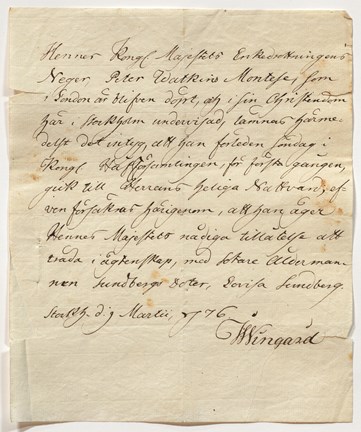 Hennes Kongl Majestets Enkedrottningens
Neger, Peter Watkins Montese, som
i London är blifven döpt, och i sin Christendom
här i Stockholm undervisad, lämnas härme-
delst det intyg, att han förleden söndag i
Kongl Hofförsamlingen, för första gången,
gick till Herrens heliga Nattvard,
ven försäkras härigenom, att han äger
Hennes Majestets nådiga tillåtelse att
träda i ägtenskap, med Ålderman-
nen Sundbergs doter, Lovisa Sundberg.
Stockh. d. 9 Martii, 1776
Wingård